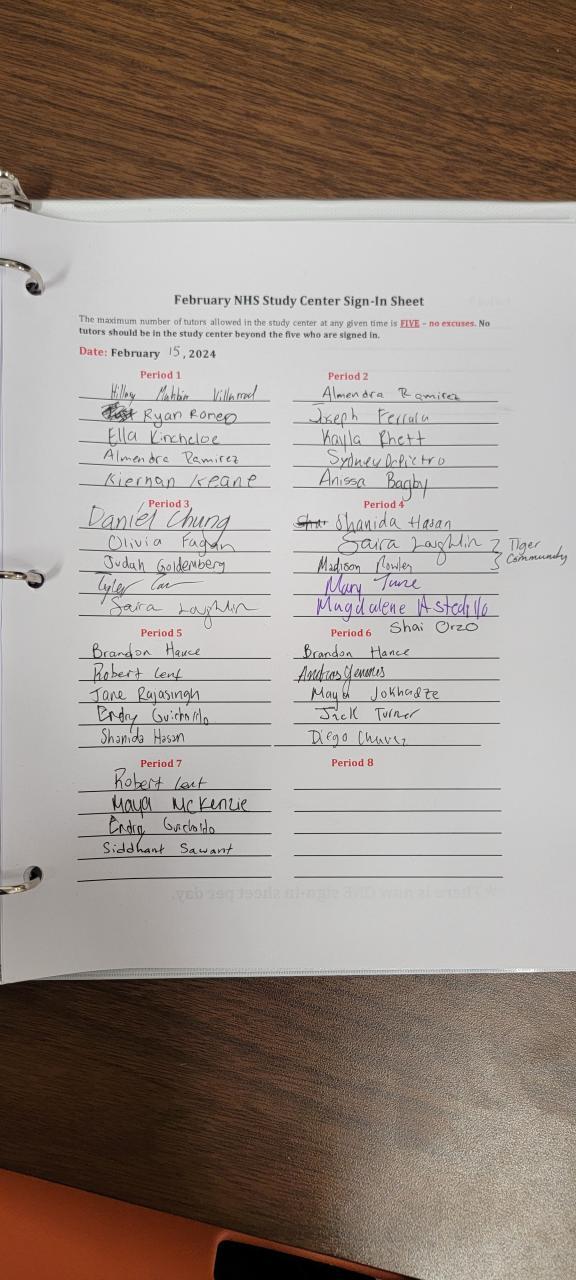 February NHS Study Center Sign-In Sheet
The maximum number of tutors allowed in the study center at any given time is FIVE – no excuses. No
tutors should be in the study center beyond the five who are signed in.
Date: February 15, 2024
Period 1
Hillary Villarreal
Ryan Romeo
Ella Kincheloe
Almendra Ramirez
Kiernan Keane
Period 2
Almendra Ramirez
Joseph Ferrara
Kayla Rhett
Sydney DiPietro
Anissa Bagby
Period 3
Daniel Chung
Olivia Fagan
Judah Goldemberg
Tyler
Saira Laughlin
Period 4
Shanida Hasan
Saira Laughlin
Tiger
Community
Madison Rowley
Mary Tune
Magdalene Astedillo
Shai Orzo
Period 5
Brandon Hance
Robert Lent
Jane Rajasingh
Endry Guichardo
Shanida Hasan
Period 6
Brandon Hance
Andreas
Maya Jokhadze
Jack Turner
Diego Chavez
Period 7
Robert Lent
Maya McKenzie
Endry Guichardo
Siddhant Sawant
Period 8
There is now ONE sign-in sheet per day.